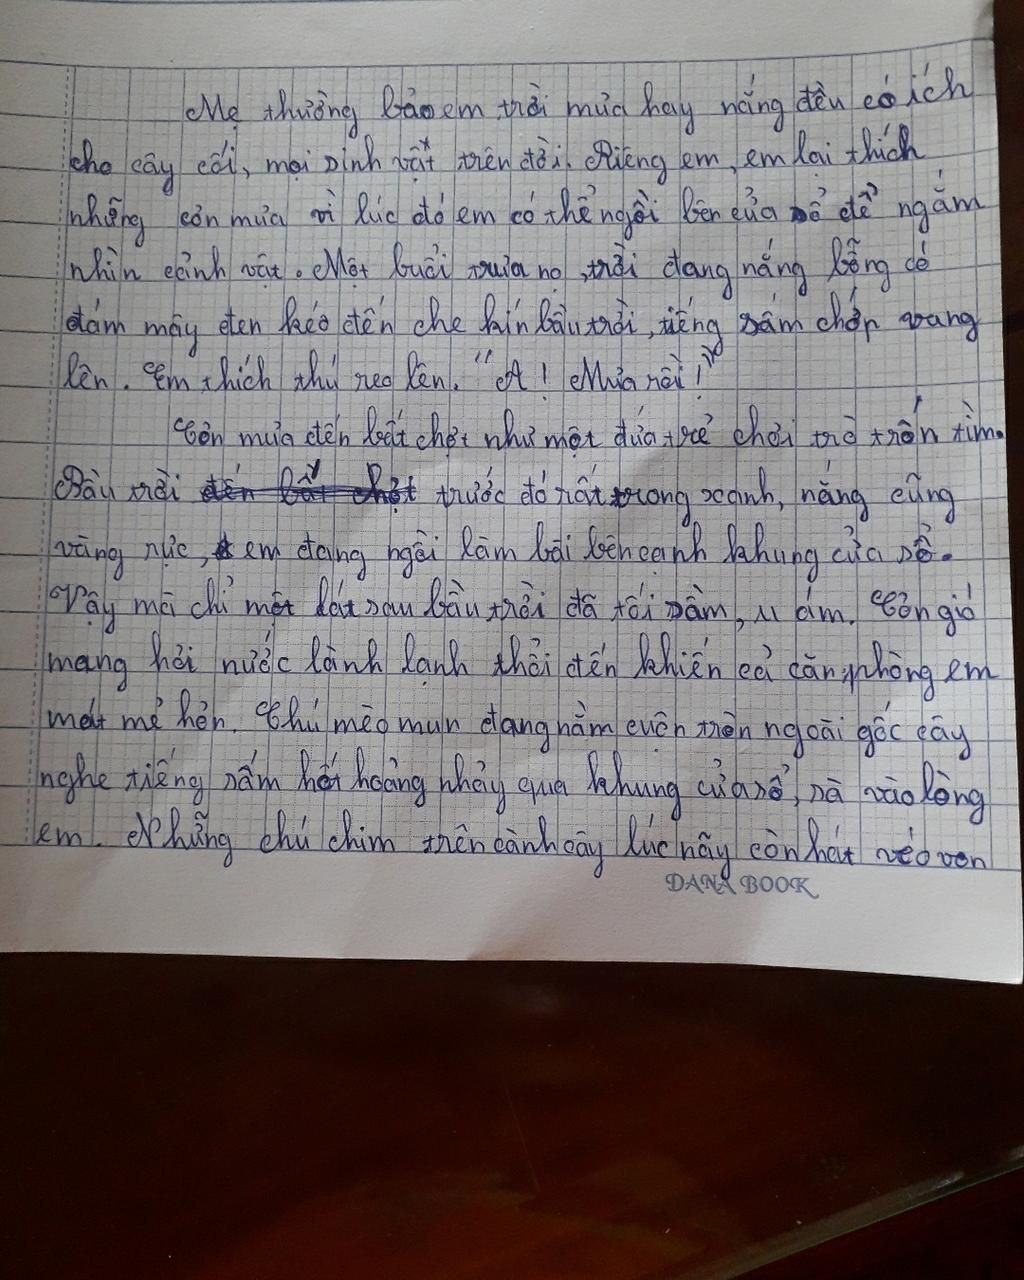 Mẹ thường bảo em trời mưa hay nắng đều có ích
cho cây cối, mọi sinh vật trên đời. Riêng em, em lại thích
những cơn mưa vì lúc đó em có thể ngồi bên cửa sổ để ngắm
nhìn cảnh vật. Một buổi trưa nọ, trời đang nắng bỗng có
đám mây đen kéo đến che kín bầu trời, tiếng sấm chớp vang
lên. Em thích thú reo lên. "A! Mưa rồi!"
Cơn mưa đến bất chợt như một đứa trẻ chơi trò trốn tìm.
Bầu trời đến bất chợt trước đó rất trong xanh, nắng cũng
vàng rực, em đang ngồi làm bài bên cạnh khung cửa sổ.
Vậy mà chỉ một lát sau bầu trời đã tối sầm, u ám. Cơn gió
mang hơi nước lành lạnh thổi đến khiến cả căn phòng em
mát mẻ hơn. Chú mèo mun đang nằm cuộn tròn ngoài gốc cây
nghe tiếng sấm hốt hoảng nhảy qua khung cửa sổ, sà vào lòng
em. Những chú chim trên cành cây lúc nãy còn hát véo von
DANA BOOK